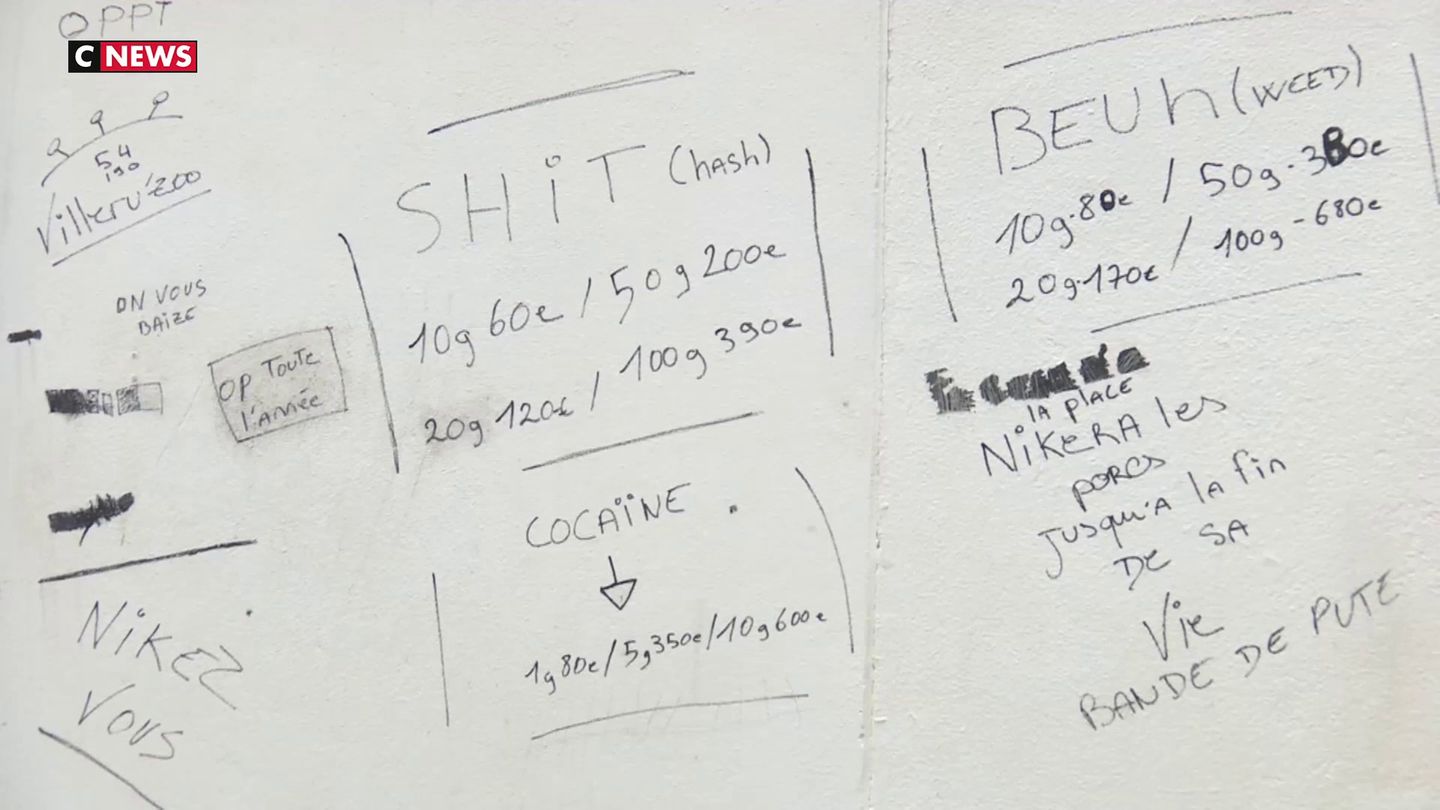 OPPT
CNEWS
54
190
Villeru'zoo
ON VOUS
BAIZE
OP TOUTE
l'année
NiKEZ
Vous
SHiT (hash)
10g 60e / 50g 200e
20g 120e / 100g 390e
COCAÏNE
1g80e/5g350e/10g600e
BEUh (WEED)
10g-80e / 50g-380e
20g-170e / 100g-680e
la place
NiKeRA les
porcs
jusqu'a la fin
DE SA
Vie
BANDE DE PUTE